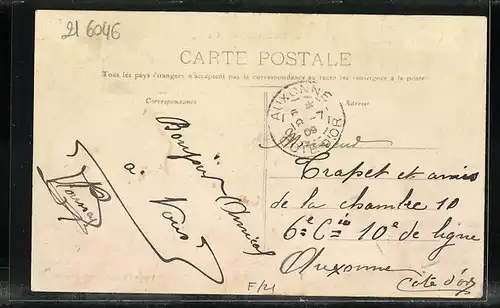 21 6046
CARTE POSTALE
Tous les pays étrangers n'acceptent pas la correspondance au recto (se renseigner à la poste)
Correspondance
Adresse
AUXONNE
18 -7
09
CÔTE-D'OR
Bonjour Amical
à Vous
Trapet et amis
de la chambre 10
6e Cie 10e de ligne
Auxonne
Côte d'or
F/21